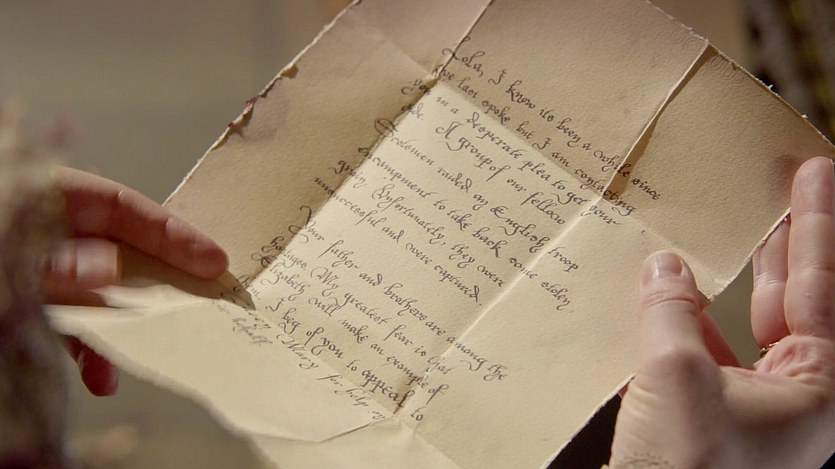 Lola, I know its been a while since
we last spoke but I am contacting
you in a desperate plea to get your
aide. A group of our fellow
Scotsmen raided an English troop
encampment to take back some stolen
grain. Unfortunately, they were
unsuccessful and were captured.
Your father and brothers are among the
hostages. My greatest fear is that
Elizabeth will make an example of
them. I beg of you to appeal to
Queen Mary for help
behalf